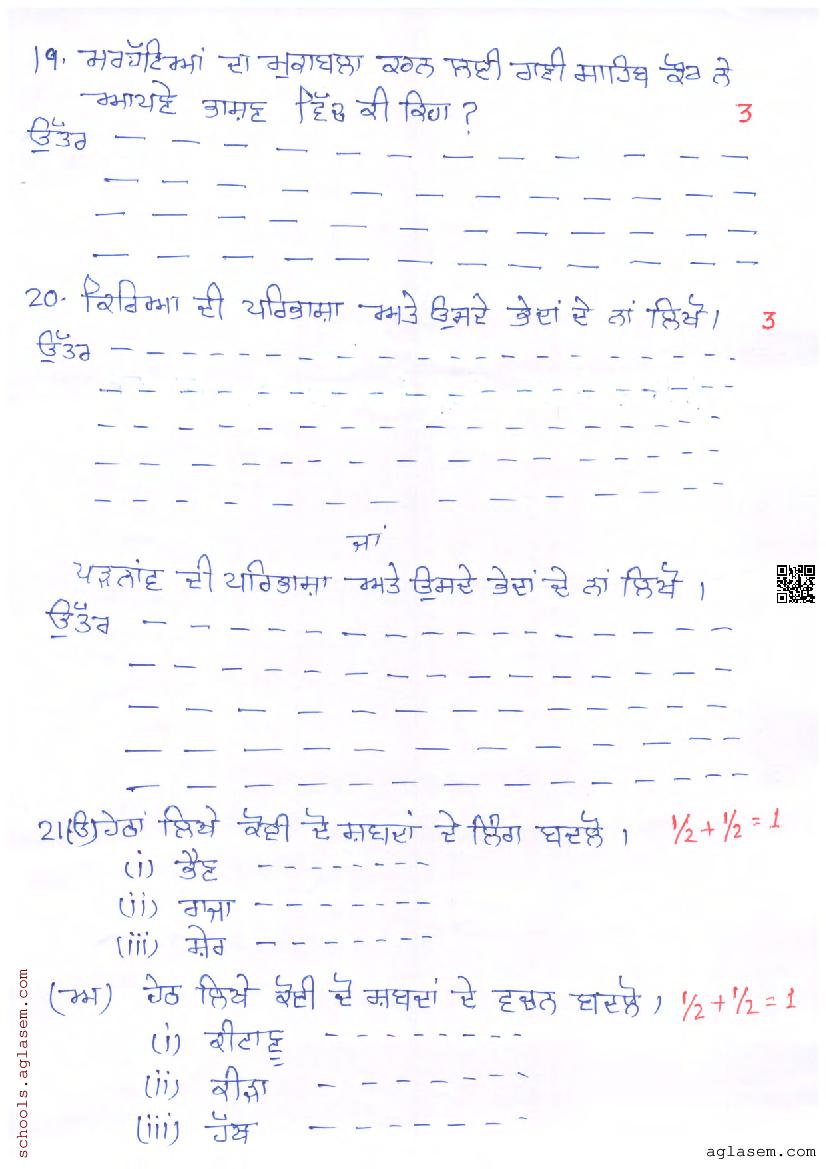 19. ਮਰਹੱਟਿਆਂ ਦਾ ਮੁਕਾਬਲਾ ਕਰਨ ਲਈ ਰਾਣੀ ਸਾਹਿਬ ਕੌਰ ਨੇ
ਆਪਣੇ ਭਾਸ਼ਣ ਵਿੱਚ ਕੀ ਕਿਹਾ ? 3
ਉੱਤਰ
20. ਕਿਰਿਆ ਦੀ ਪਰਿਭਾਸ਼ਾ ਅਤੇ ਉਸਦੇ ਭੇਦਾਂ ਦੇ ਨਾਂ ਲਿਖੋ। 3
ਉੱਤਰ
ਜਾਂ
ਪੜਨਾਂਵ ਦੀ ਪਰਿਭਾਸ਼ਾ ਅਤੇ ਉਸਦੇ ਭੇਦਾਂ ਦੇ ਨਾਂ ਲਿਖੋ ।
ਉੱਤਰ
21(ੳ) ਹੇਠਾਂ ਲਿਖੇ ਕੋਈ ਦੋ ਸ਼ਬਦਾਂ ਦੇ ਲਿੰਗ ਬਦਲੋ । 1/2 + 1/2 = 1
(i) ਭੈਣ
(ii) ਰਾਜਾ
(iii) ਸ਼ੇਰ
(ਅ) ਹੇਠ ਲਿਖੇ ਕੋਈ ਦੋ ਸ਼ਬਦਾਂ ਦੇ ਵਚਨ ਬਦਲੋ । 1/2 + 1/2 = 1
(i) ਕੀਟਾਣੂ
(ii) ਕੀੜਾ
(iii) ਹੱਥ
schools.aglasem.com
aglasem.com